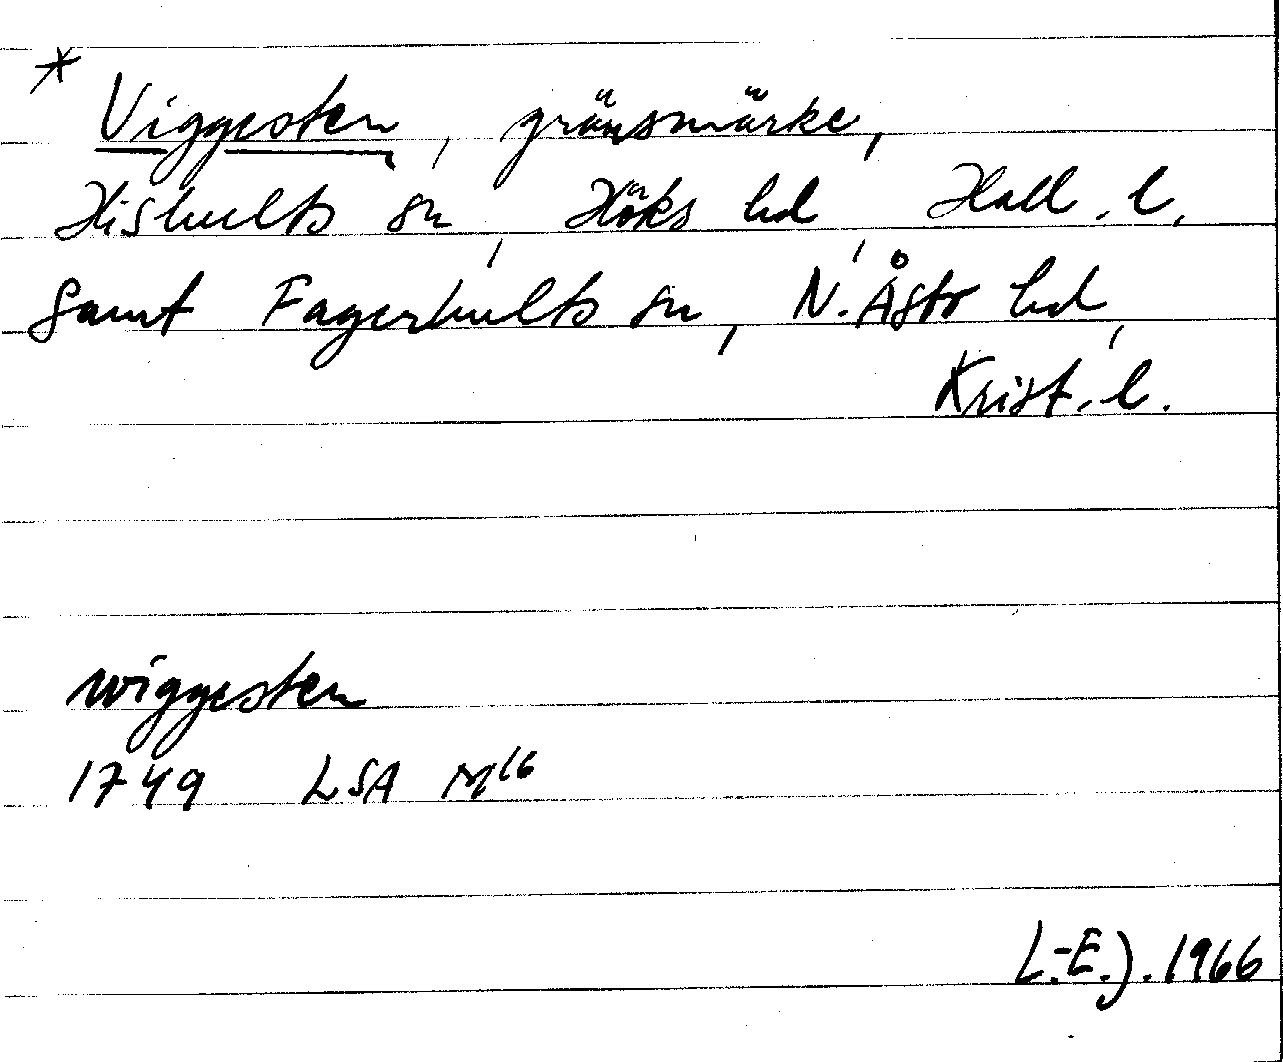 * Viggesten, gränsmärke,
Hishults sn, Höks hd, Hall. l.
samt Fagerhults sn, N. Åsbo hd,
Krist. l.
wiggesten
1749 LSA M16
L.-E. J. 1966